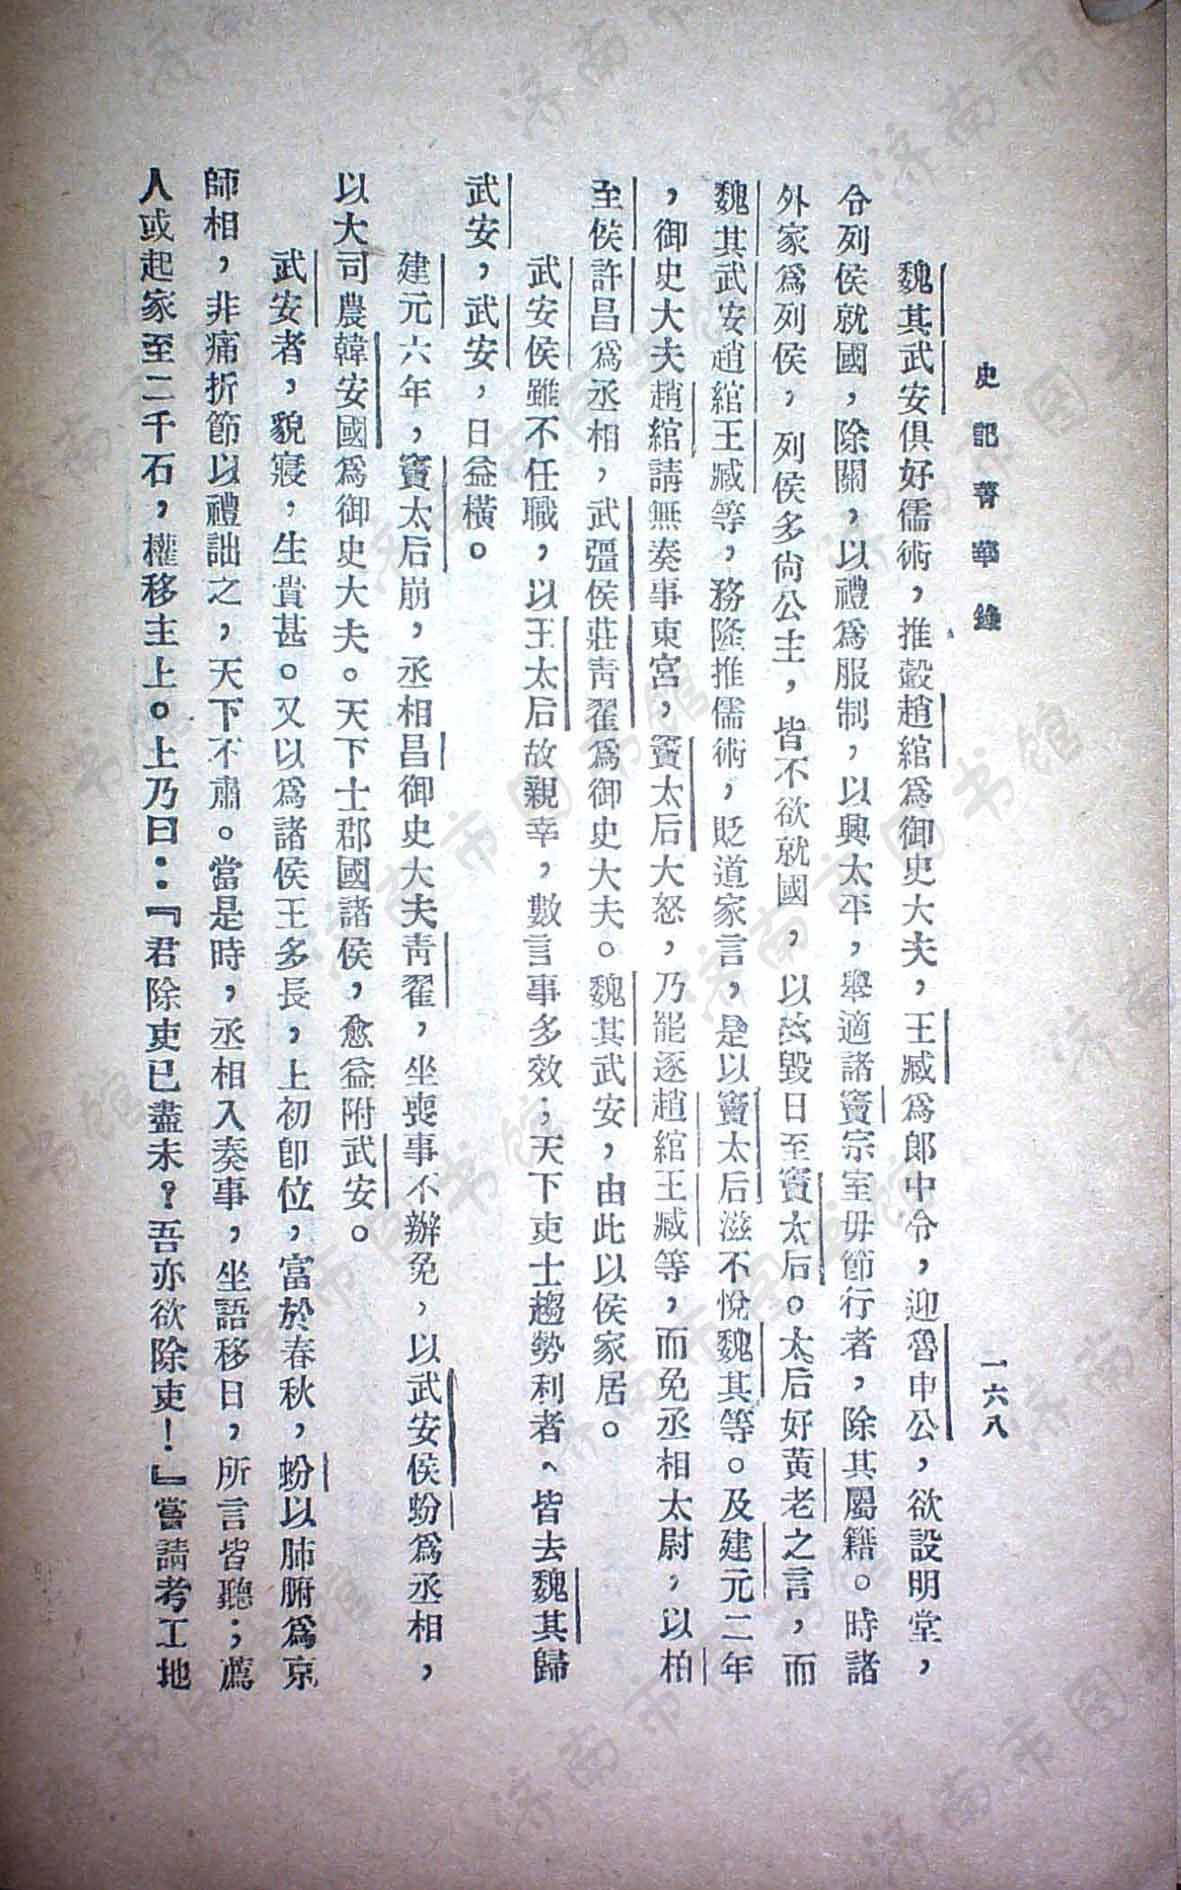 史記菁華錄
一六八
魏其武安俱好儒術，推轂趙綰爲御史大夫，王臧爲郎中令，迎魯申公，欲設明堂，
令列侯就國，除關，以禮爲服制，以興太平，舉適諸竇宗室毋節行者，除其屬籍。時諸
外家爲列侯，列侯多尙公主，皆不欲就國，以故毀日至竇太后。太后好黃老之言，而
魏其武安趙綰王臧等，務隆推儒術，貶道家言，是以竇太后滋不悅魏其等。及建元二年
，御史大夫趙綰請無奏事東宮，竇太后大怒，乃罷逐趙綰王臧等，而免丞相太尉，以柏
至侯許昌爲丞相，武彊侯莊靑翟爲御史大夫。魏其武安，由此以侯家居。
武安侯雖不任職，以王太后故親幸，數言事多效；天下吏士趨勢利者、皆去魏其歸
武安，武安，日益橫。
建元六年，竇太后崩，丞相昌御史大夫靑翟，坐喪事不辦免，以武安侯蚡爲丞相，
以大司農韓安國爲御史大夫。天下士郡國諸侯，愈益附武安。
武安者，貌寢，生貴甚。又以爲諸侯王多長，上初卽位，富於春秋，蚡以肺腑爲京
師相，非痛折節以禮詘之，天下不肅。當是時，丞相入奏事，坐語移日，所言皆聽；薦
人或起家至二千石，權移主上。上乃曰：『君除吏已盡未？吾亦欲除吏！』嘗請考工地
济南市图书馆